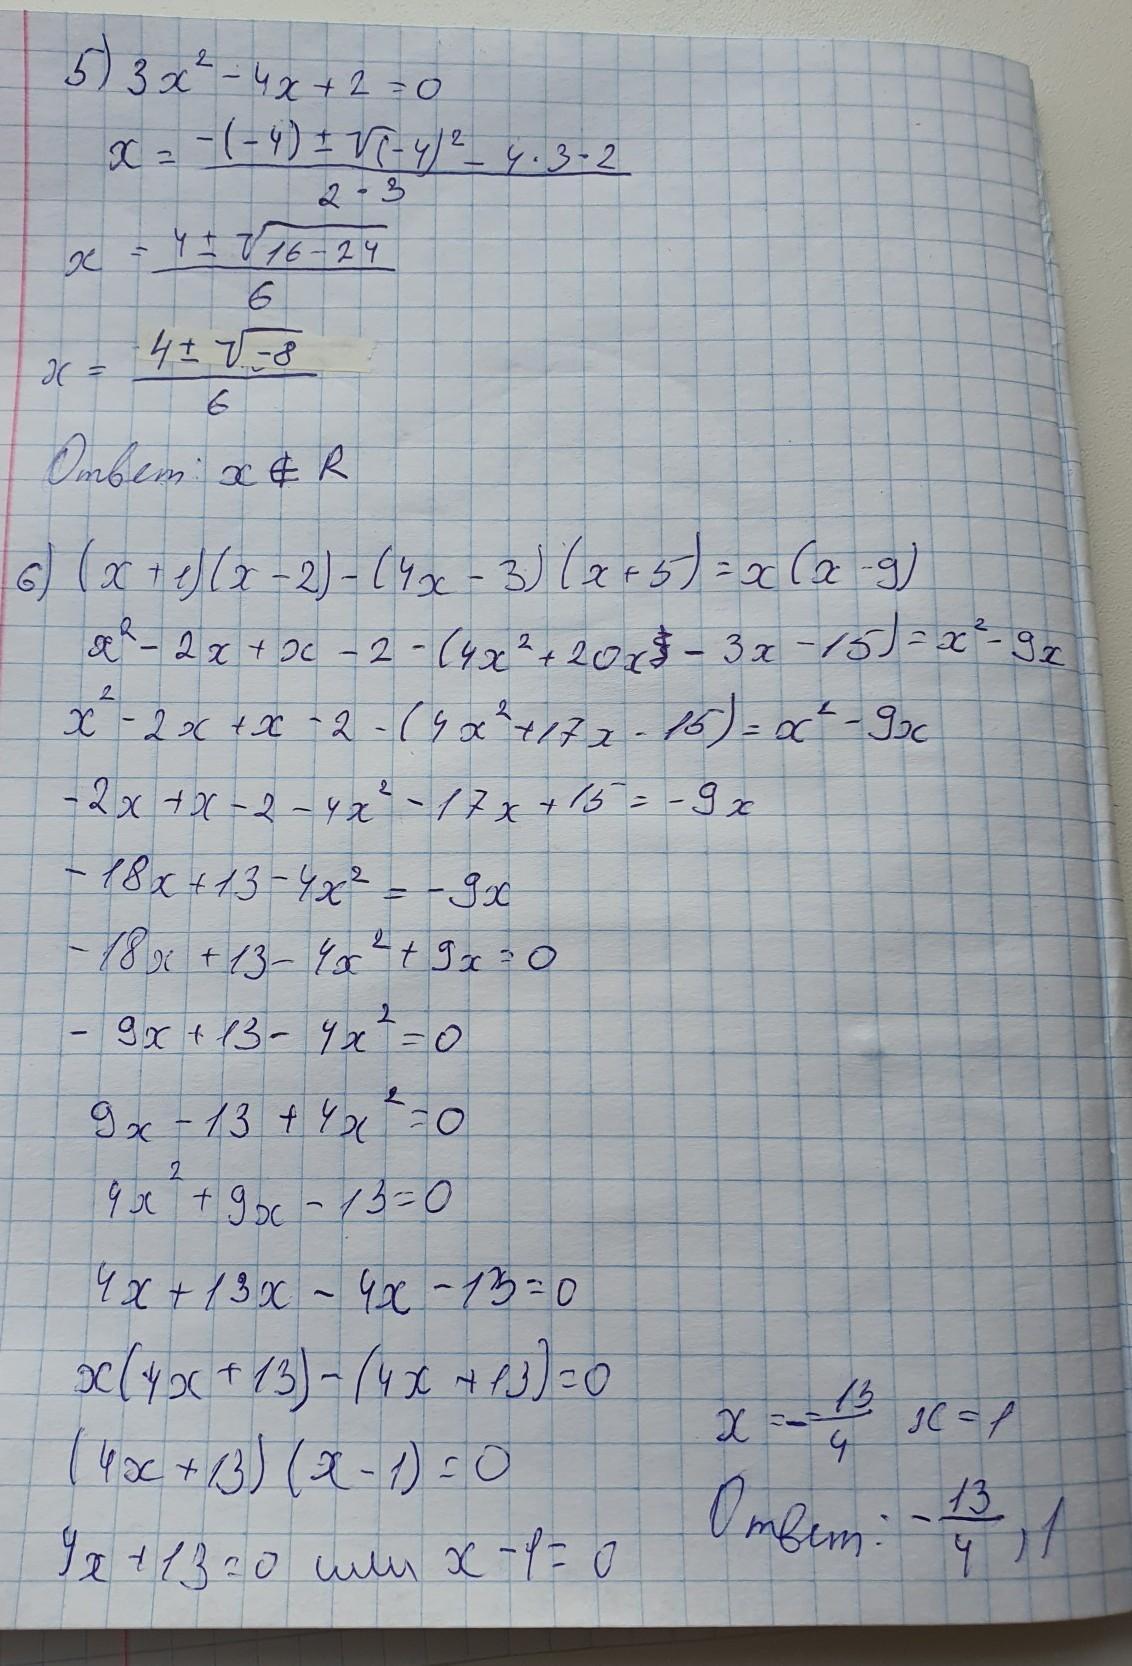 5) 3x² - 4x + 2 = 0
x = (-(-4) ± √(-4)² - 4·3·2) / (2·3)
x = (4 ± √(16-24)) / 6
x = (4 ± √-8) / 6
Ответ: x ∉ R
6) (x+1)(x-2)-(4x-3)(x+5)=x(x-9)
x² - 2x + x - 2 - (4x² + 20x - 3x - 15) = x² - 9x
x² - 2x + x - 2 - (4x² + 17x - 15) = x² - 9x
-2x + x - 2 - 4x² - 17x + 15 = -9x
-18x + 13 - 4x² = -9x
-18x + 13 - 4x² + 9x = 0
- 9x + 13 - 4x² = 0
9x - 13 + 4x² = 0
4x² + 9x - 13 = 0
4x + 13x - 4x - 13 = 0
x(4x+13)-(4x+13)=0
(4x+13)(x-1)=0
4x+13=0 или x-1=0
x = -13/4 x = 1
Ответ: -13/4, 1